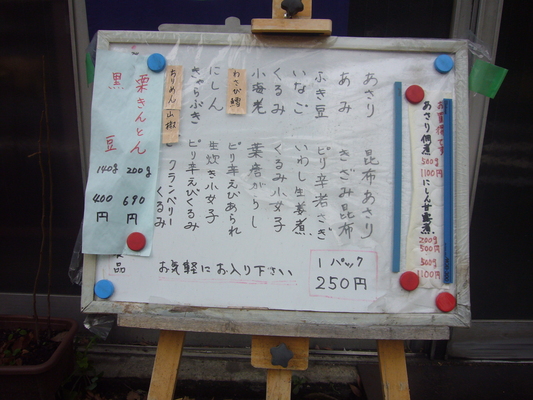 お買得です
あさり佃煮
300g
1100円
にしん甘露煮
200g
500円
300g
1100円
あさり
あみ
ふき豆
いなご
くるみ
小海老
わさび鱈
にしん
きゃらぶき
ちりめん山椒
昆布あさり
きざみ昆布
ピリ辛若さぎ
いわし生姜煮
くるみ小女子
葉唐がらし
ピリ辛えびあられ
生炊き小女子
ピリ辛えびくるみ
クランベリーくるみ
栗きんとん
200g
690円
黒豆
140g
400円
品
お気軽にお入り下さい
1パック
250円